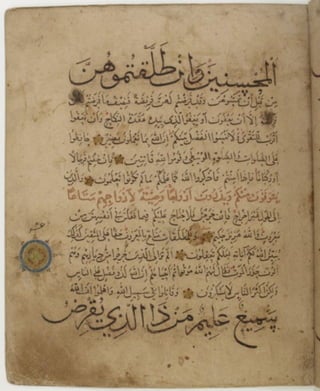 المحسنين وان طلقتموهن
من قبل ان تمسوهن وقد فرضتم لهن فريضة فنصف ما فرضتم
الا ان يعفون او يعفو الذي بيده عقدة النكاح وان تعفوا
اقرب للتقوى ولا تنسوا الفضل بينكم ان الله بما تعملون بصير حافظوا
على الصلوات والصلوة الوسطى وقوموا لله قانتين فان خفتم فرجالا
او ركبانا فاذا امنتم فاذكروا الله كما علمكم ما لم تكونوا تعلمون والذين
يتوفون منكم ويذرون ازواجا وصية لازواجهم متاعا
الى الحول غير اخراج فان خرجن فلا جناح عليكم فيما فعلن في انفسهن من
معروف والله عزيز حكيم وللمطلقات متاع بالمعروف حقا على المتقين كذلك
يبين الله لكم اياته لعلكم تعقلون الم تر الى الذين خرجوا من ديارهم وهم
الوف حذر الموت فقال لهم الله موتوا ثم احياهم ان الله لذو فضل على الناس
ولكن اكثر الناس لا يشكرون وقاتلوا في سبيل الله واعلموا ان الله
سميع عليم من ذا الذي يقرض
عشر